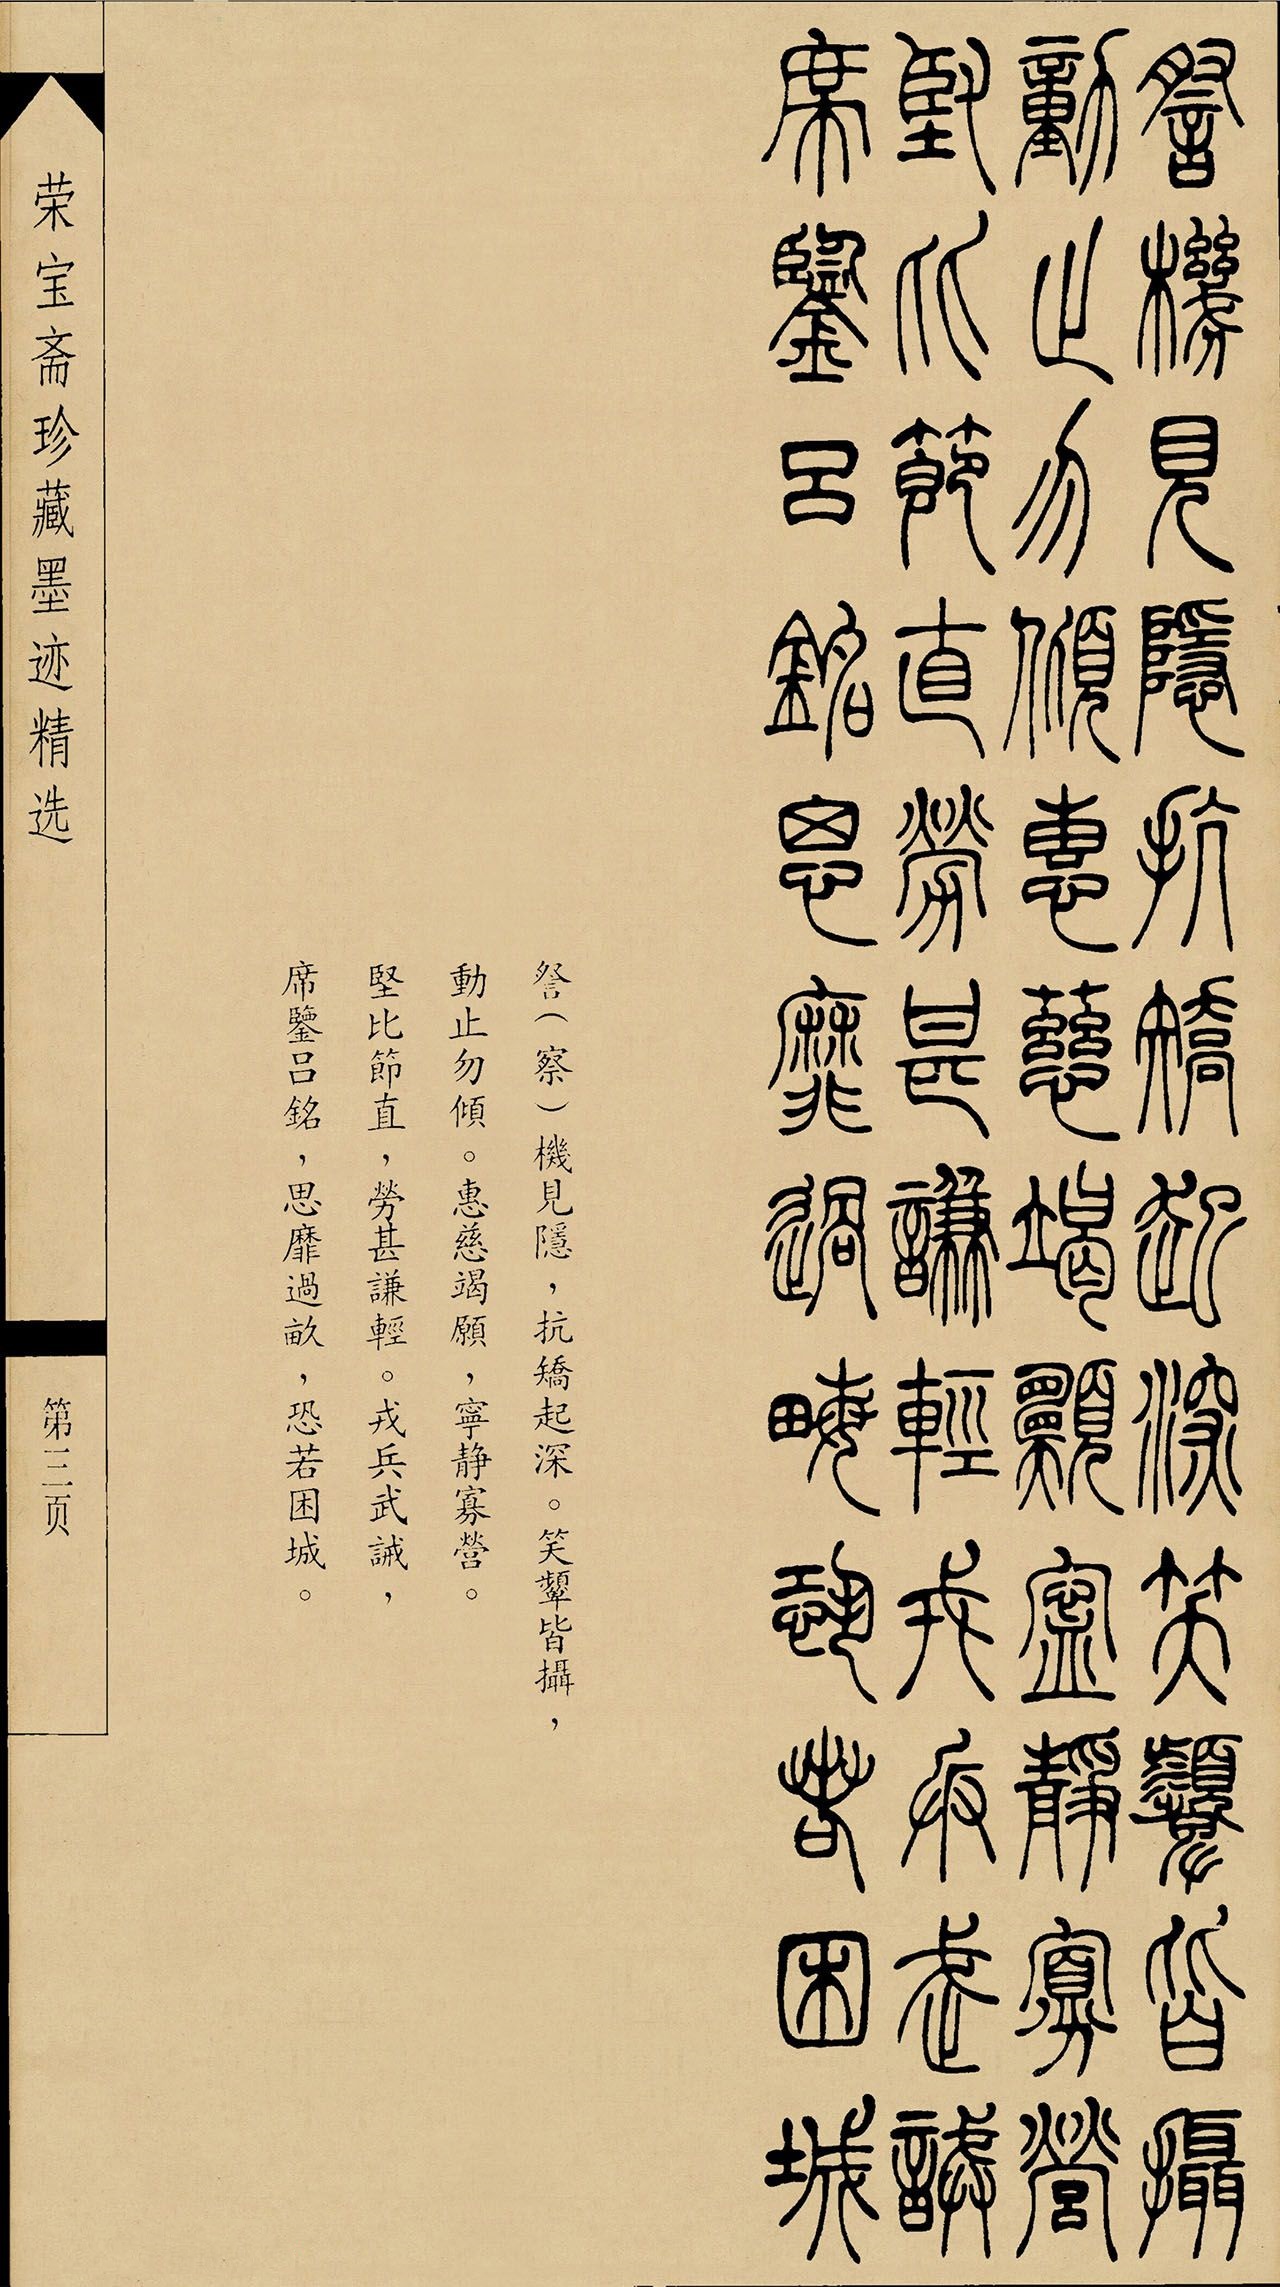 詧機見隱抗矯起深笑顰皆攝
動止勿傾惠慈竭願寧靜寡營
堅比節直勞甚謙輕戎兵武誡
席鑒呂銘思靡過畝恐若困城
詧（察）機見隱，抗矯起深。笑顰皆攝，
動止勿傾。惠慈竭願，寧静寡營。
堅比節直，勞甚謙輕。戎兵武誡，
席鑒呂銘，思靡過畝，恐若困城。
荣宝斋珍藏墨迹精选
第三页